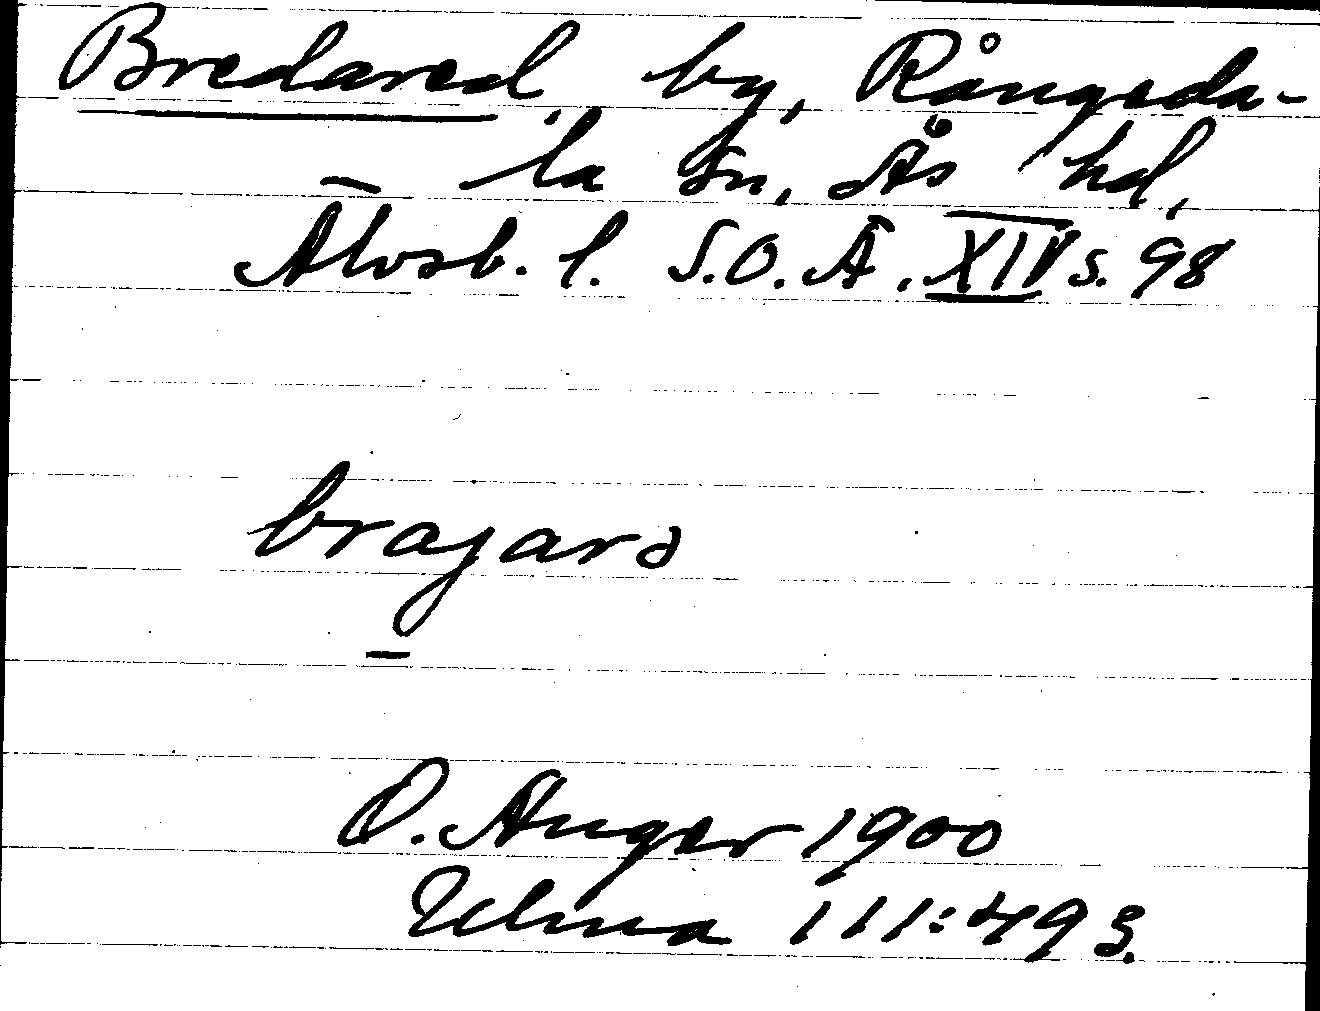 Bredared, by, Rångeda-
la sn, Ås hd,
Älvsb. l. S.O.Ä. XIV s. 98
brajarə
O. Anger 1900
Ulma 111:493.